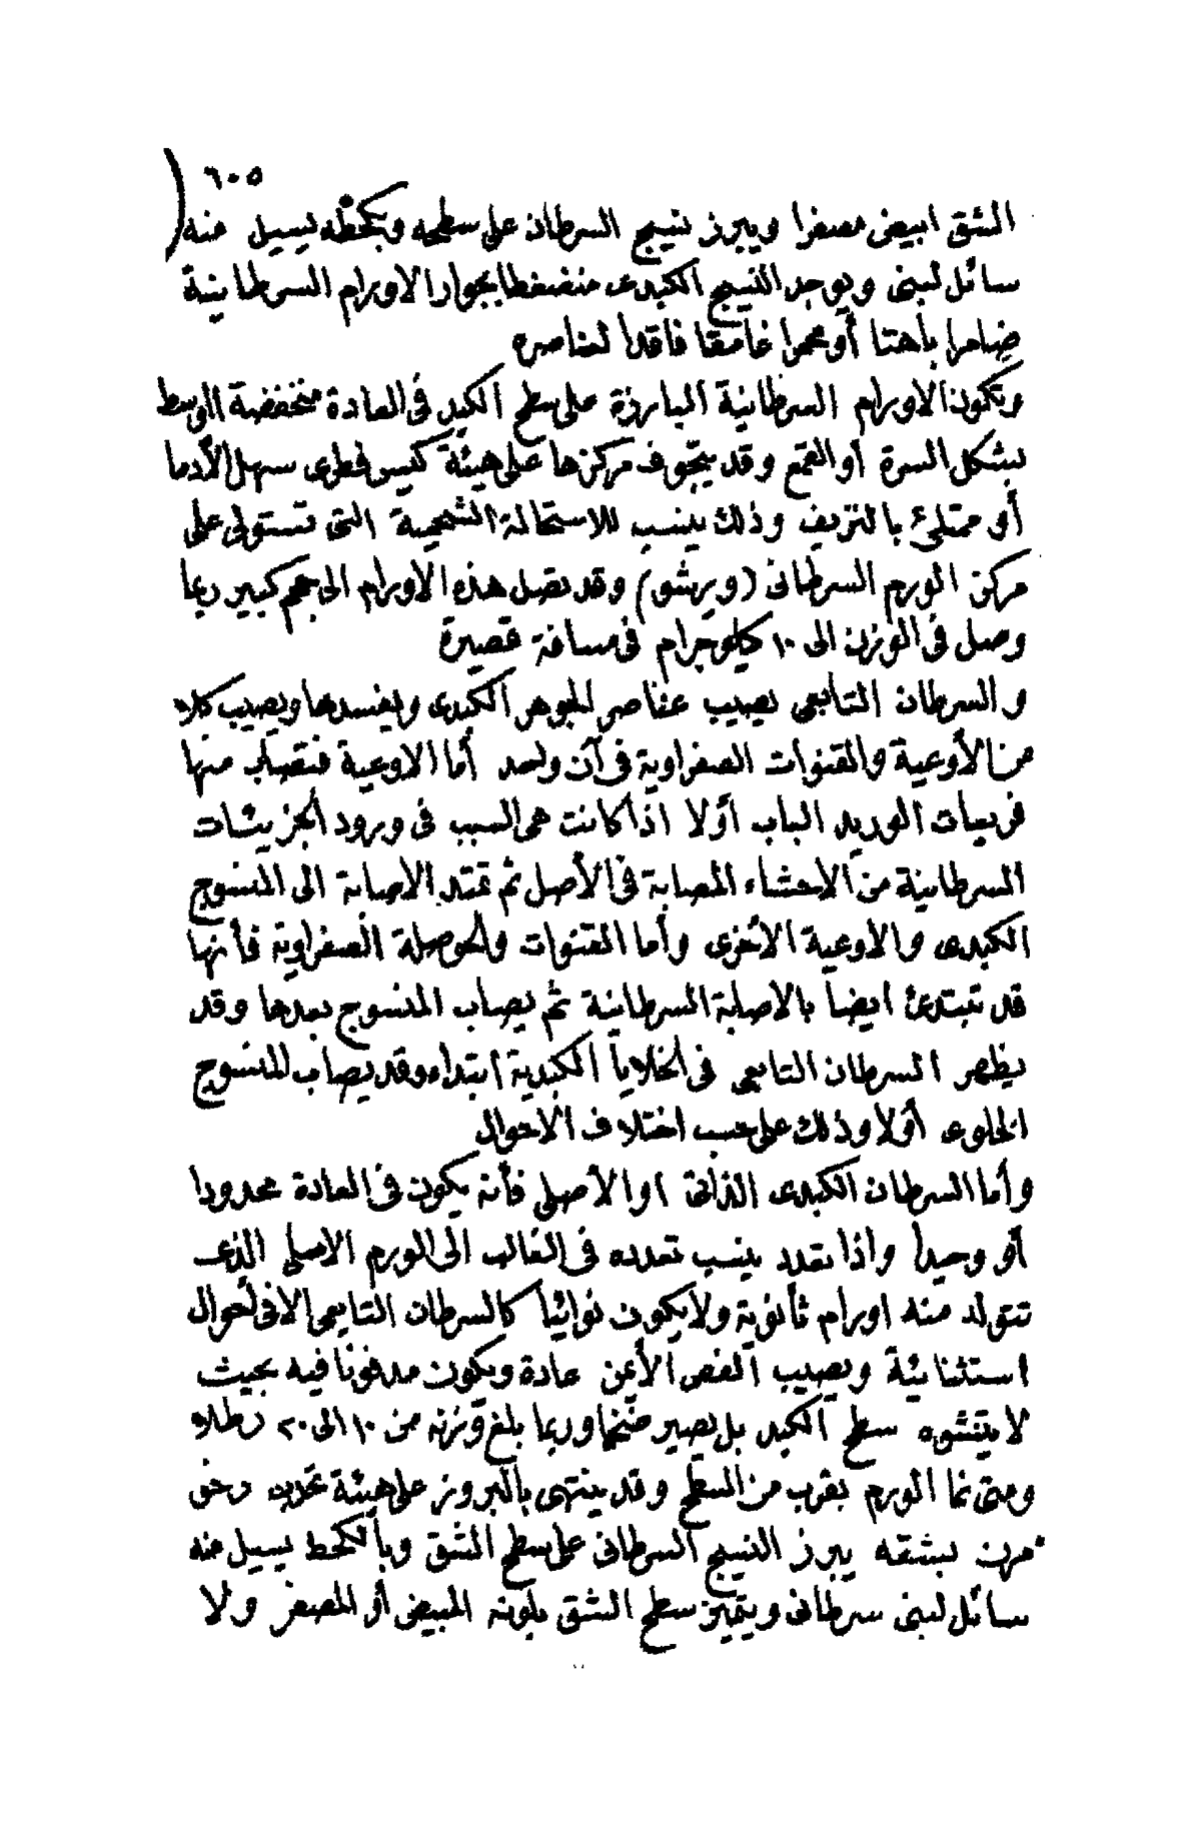 ٦٠٥
الشق ابيض مصفرا ويبرز نسيج السرطان على سطحه وبكحطه يسيل منه
سائل لبنى ويوجد النسيج الكبدى منضغطا بجوار الاورام السرطانية
ضامرا باهتا أو محمرا غامقا فاقدا لعناصره
وتكون الاورام السرطانية البارزة على سطح الكبد فى العادة منخفضة الوسط
بشكل السرة أو القمع وقد يتجوف مركزها على هيئة كيس فطرى سهل الأدما
أو ممتلئ بالنزيف وذلك ينسب للاستحالة الشحمية التى تستولى على
مركز الورم السرطانى (ويرشو) وقد تصل هذه الاورام الى حجم كبير ربما
وصل فى الوزن الى ١٠ كيلوجرام فى مسافة قصيرة
والسرطان التابعى يصيب عناصر الجوهر الكبدى ويفسدها ويصيب كلا
من الأوعية والقنوات الصفراوية فى آن واحد أما الاوعية فتصاب منها
فريعات الوريد الباب أولا اذا كانت هى السبب فى ورود الجزيئات
السرطانية من الاحشاء المصابة فى الأصل ثم تمتد الاصابة الى المنسوج
الكبدى والاوعية الاخرى وأما القنوات والحوصلة الصفراوية فأنها
قد تبتدئ ايضا بالاصابة السرطانية ثم يصاب المنسوج بعدها وقد
يظهر السرطان التابعى فى الخلايا الكبدية ابتداء وقد يصاب المنسوج
الخلوى أولا وذلك على حسب اختلاف الاحوال
وأما السرطان الكبدى الذاتى او الأصلى فأنه يكون فى العادة محدودا
أو وحيدا واذا تعدد ينسب تعدده فى الغالب الى الورم الاصلى الذى
تتولد منه اورام ثانوية ولا يكون نوائيا كالسرطان التابعى الا فى أحوال
استثنائية ويصيب الفص الأيمن عادة ويكون مدفونا فيه بحيث
لا يتشوه سطح الكبد بل يصير ضخما وربما بلغ وزنه من ١٠ الى ٢٠ رطلا
ومتى نما الورم بقرب من السطح وقد ينتهى بالبروز على هيئة تحدب رخو
مرن بشقه يبرز النسيج السرطانى على سطح الشق وبالكحط يسيل منه
سائل لبنى سرطانى ويتميز سطح الشق بلونه المبيض أو المصفر ولا